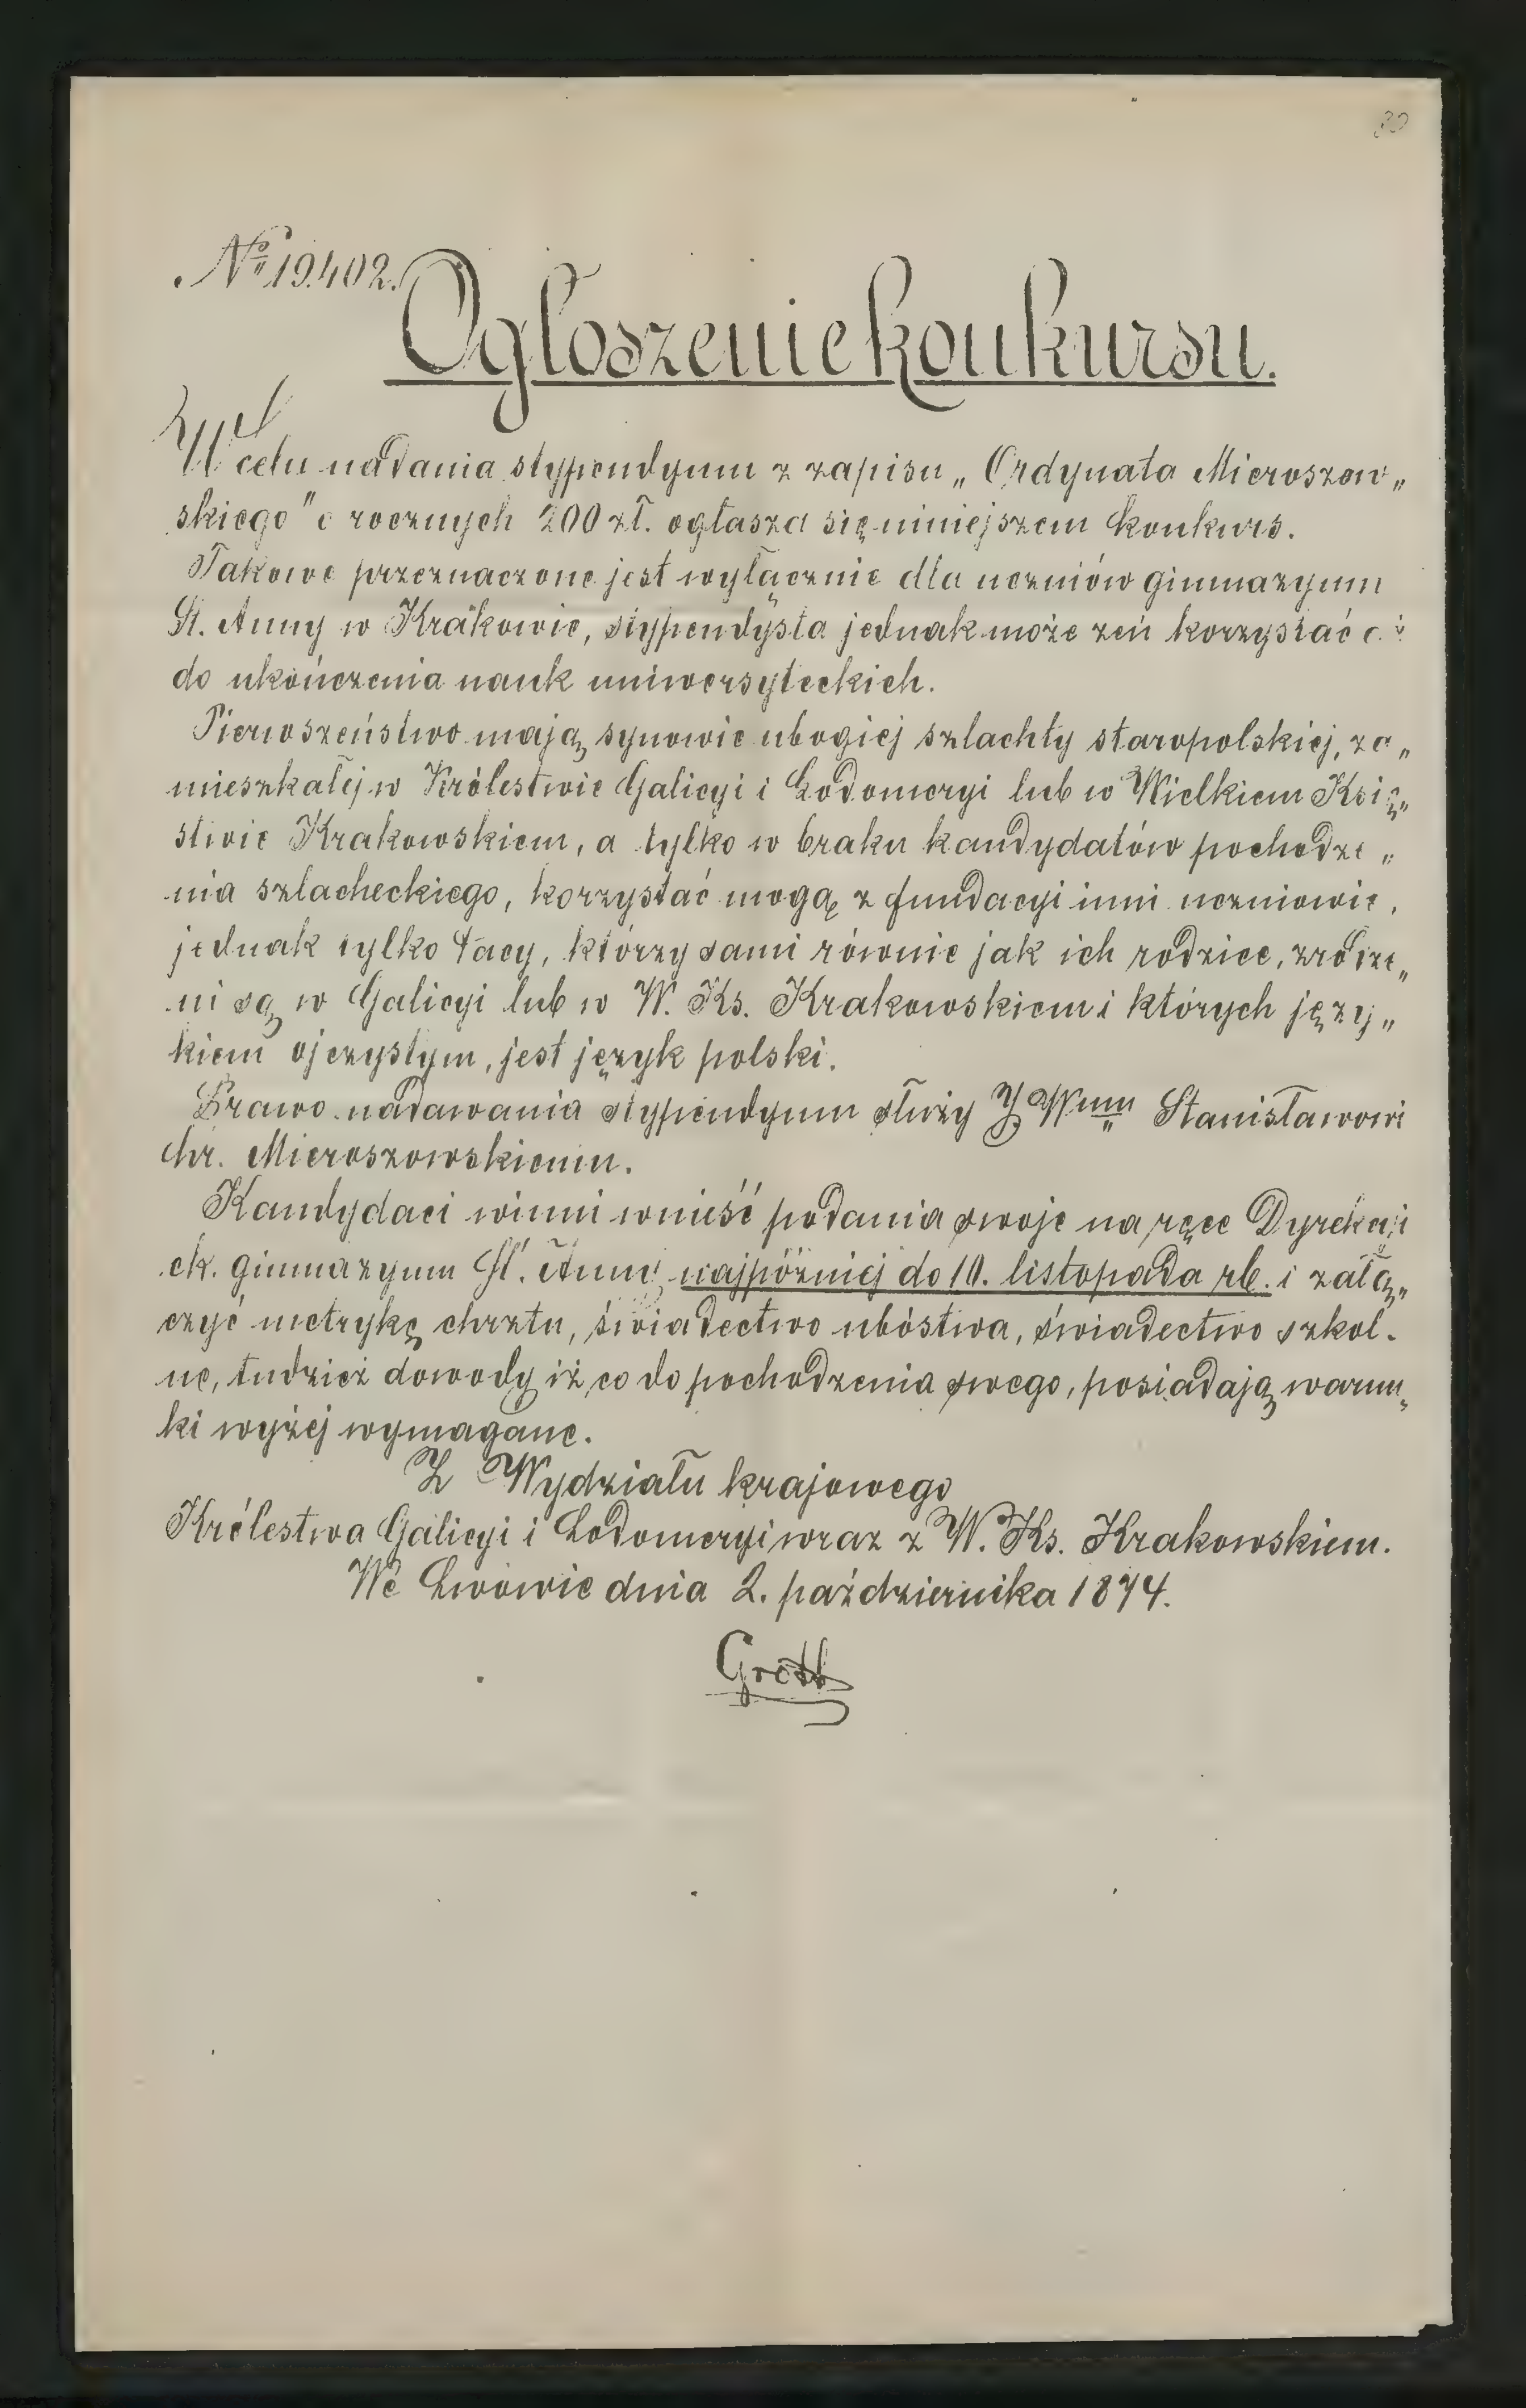 80
№ 19.402.
Ogłoszenie konkursu.
W celu nadania stypendyum z zapisu „Ordynata Mieroszow„
skiego" o rocznych 200 zł. ogłasza się niniejszem konkurs.
Takowe przeznaczone jest wyłącznie dla uczniów gimnazyum
Śt. Anny w Krakowie, stypendysta jednak może zeń korzystać aż
do ukończenia nauk uniwersyteckich.
Pierwszeństwo mają synowie ubogiej szlachty staropolskiej, za„
mieszkałej w Królestwie Galicyi i Lodomeryi lub w Wielkiem Księ„
stwie Krakowskiem, a tylko w braku kandydatów pochodze„
nia szlacheckiego, korzystać mogą z fundacyi inni uczniowie,
jednak tylko tacy, którzy sami równie jak ich rodzice, zrodze„
ni są w Galicyi lub w W. Ks. Krakowskiem i których języ„
kiem ojczystym, jest język polski.
Prawo nadawania stypendyum służy JWmu Stanisławowi
hr. Mieroszowskiemu.
Kandydaci winni wnieść podania swoje na ręce Dyrekcyi
ck. gimnazyum Śt. Anny najpóźniej do 10. listopada rb. i załą„
czyć metrykę chrztu, świadectwo ubóstwa, świadectwo szkol-
ne, tudzież dowody iż co do pochodzenia swego, posiadają warun„
ki wyżej wymagane.
Z Wydziału krajowego
Królestwa Galicyi i Lodomeryi wraz z W. Ks. Krakowskiem.
We Lwowie dnia 2. października 1874.